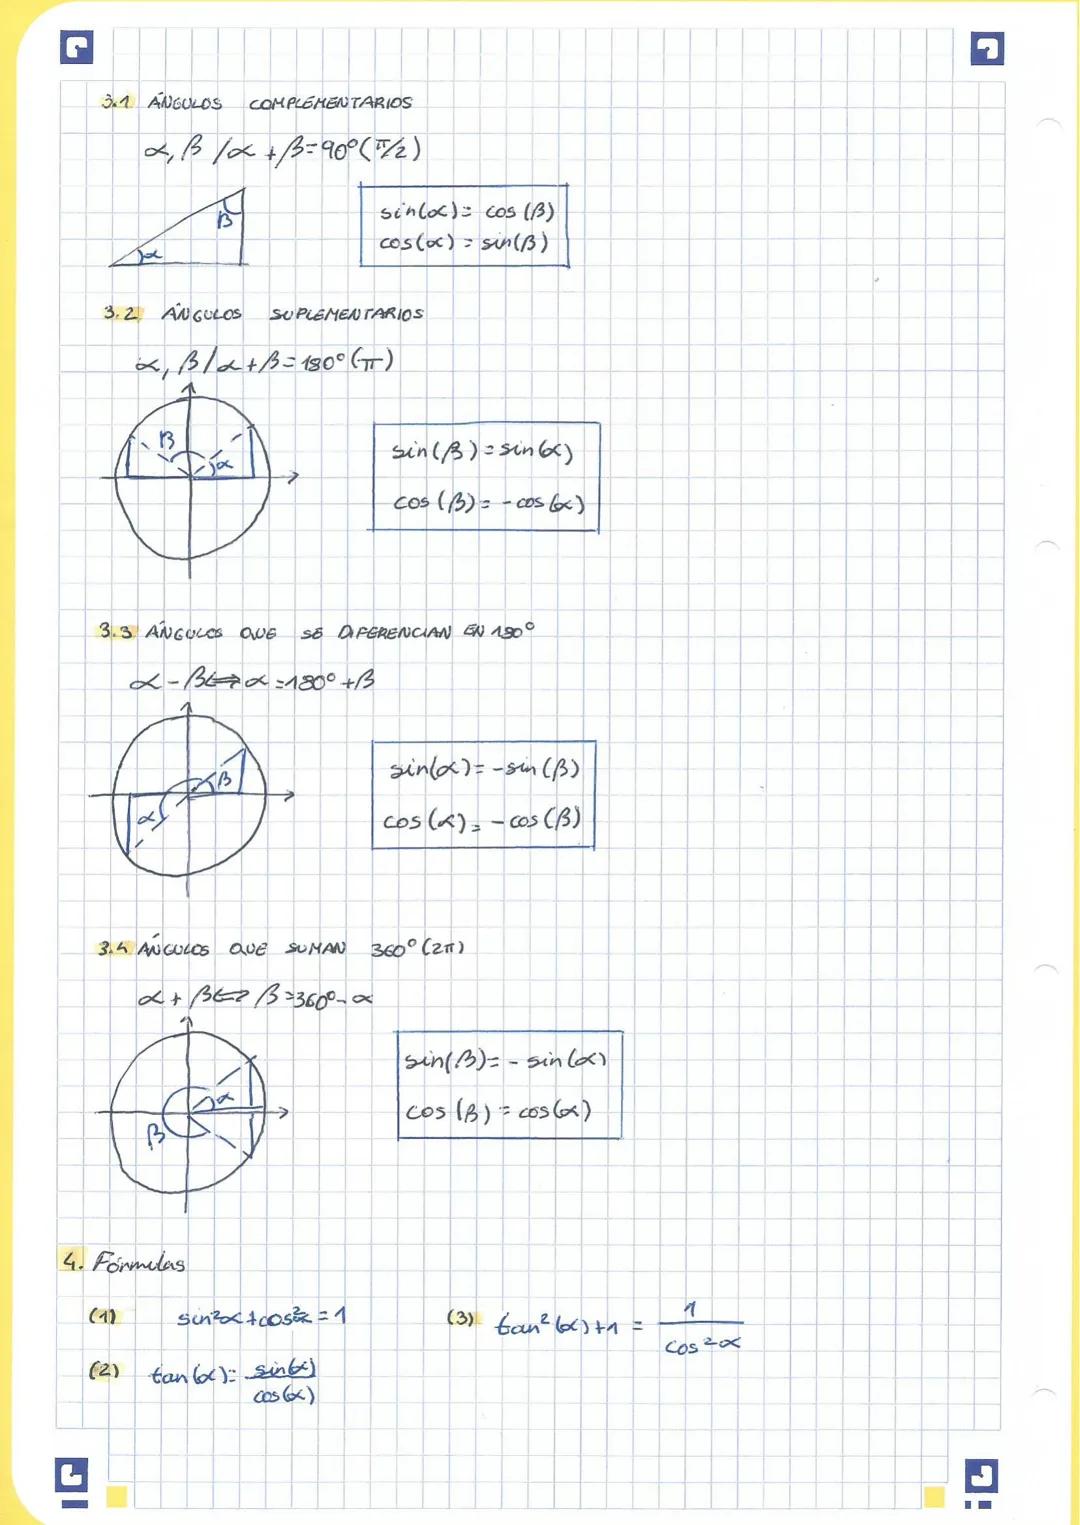 3.1 ÁNGULOS COMPLEMENTARIOS
α, β / α + β = 90° (π/2)
β
α
sin(α) = cos (β)
cos(α) = sin(β)
3.2 ÁNGULOS SUPLEMENTARIOS
α, β / α + β = 180° (π)
β
α
sin(β) = sin(α)
cos (β) = - cos(α)
3.3 ÁNGULOS QUE SE DIFERENCIAN EN 180°
α - β ⇔ α = 180° + β
β
α
sin(α) = - sin (β)
cos (α) = - cos (β)
3.4 ÁNGULOS QUE SUMAN 360° (2π)
α + β ⇔ β = 360° - α
α
β
sin(β) = - sin (α)
cos (β) = cos(α)
4. Fórmulas
(1) sin²α + cos²α = 1
(3) tan²(α) + 1 = 1 / cos²α
(2) tan(α) = sin(α) / cos(α)